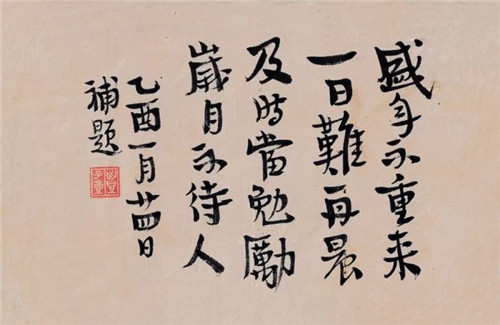 盛年不重来
一日難再晨
及時當勉勵
歲月不待人
乙酉一月廿四日
補題